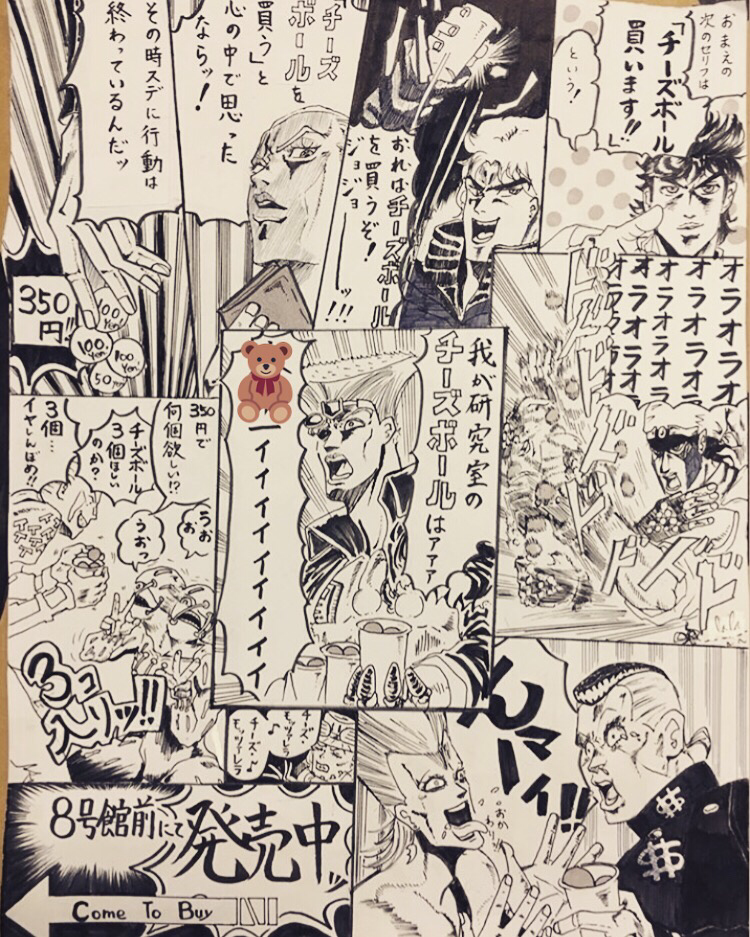 おまえの
次のセリフは
「チーズボール
買います!!
という!
おれはチーズボール
を買うぞ!
ジョジョーーーッ!!!
「チーズ
ボールを
買う」と
心の中で思った
ならッ!
その時スデに行動は
終わっているんだッ
350
円!!
100
Yen
100
Yen
100
Yen
50
オラオラオラ
オラオラオラ
オラオラオラ
オラオラオラ
オラオラオラ
ドドドド
ドドドド
我が研究室の
チーズボールはァァァ
イイイイイイイイイ
350円で
何個欲しい!?
チーズボール
3個ほしい
のか?
3個…
イヤしんぼめ!!
うお
お
うおっ
3コ
入りッ!!
チーズ♪
モッツァレラ♪
チーズ♪
モッツァレラ♪
んマーイ!!
8号館前にて
発売中
Come To Buy